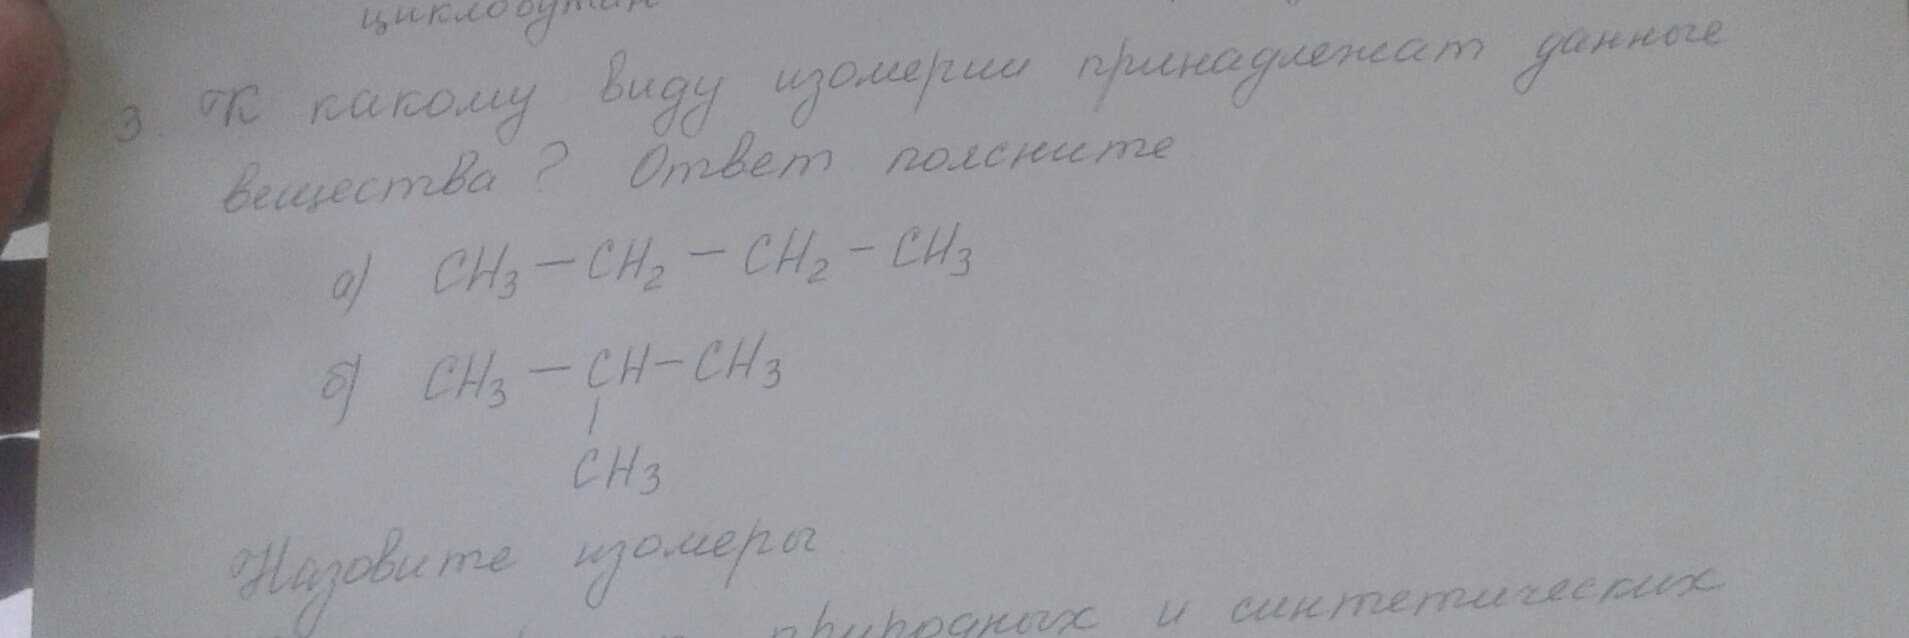 циклобутан
3. К какому виду изомерии принадлежат данные
вещества? Ответ поясните
а) CH₃ – CH₂ – CH₂ – CH₃
б) CH₃ – CH – CH₃
|
CH₃
Назовите изомеры
природных и синтетических